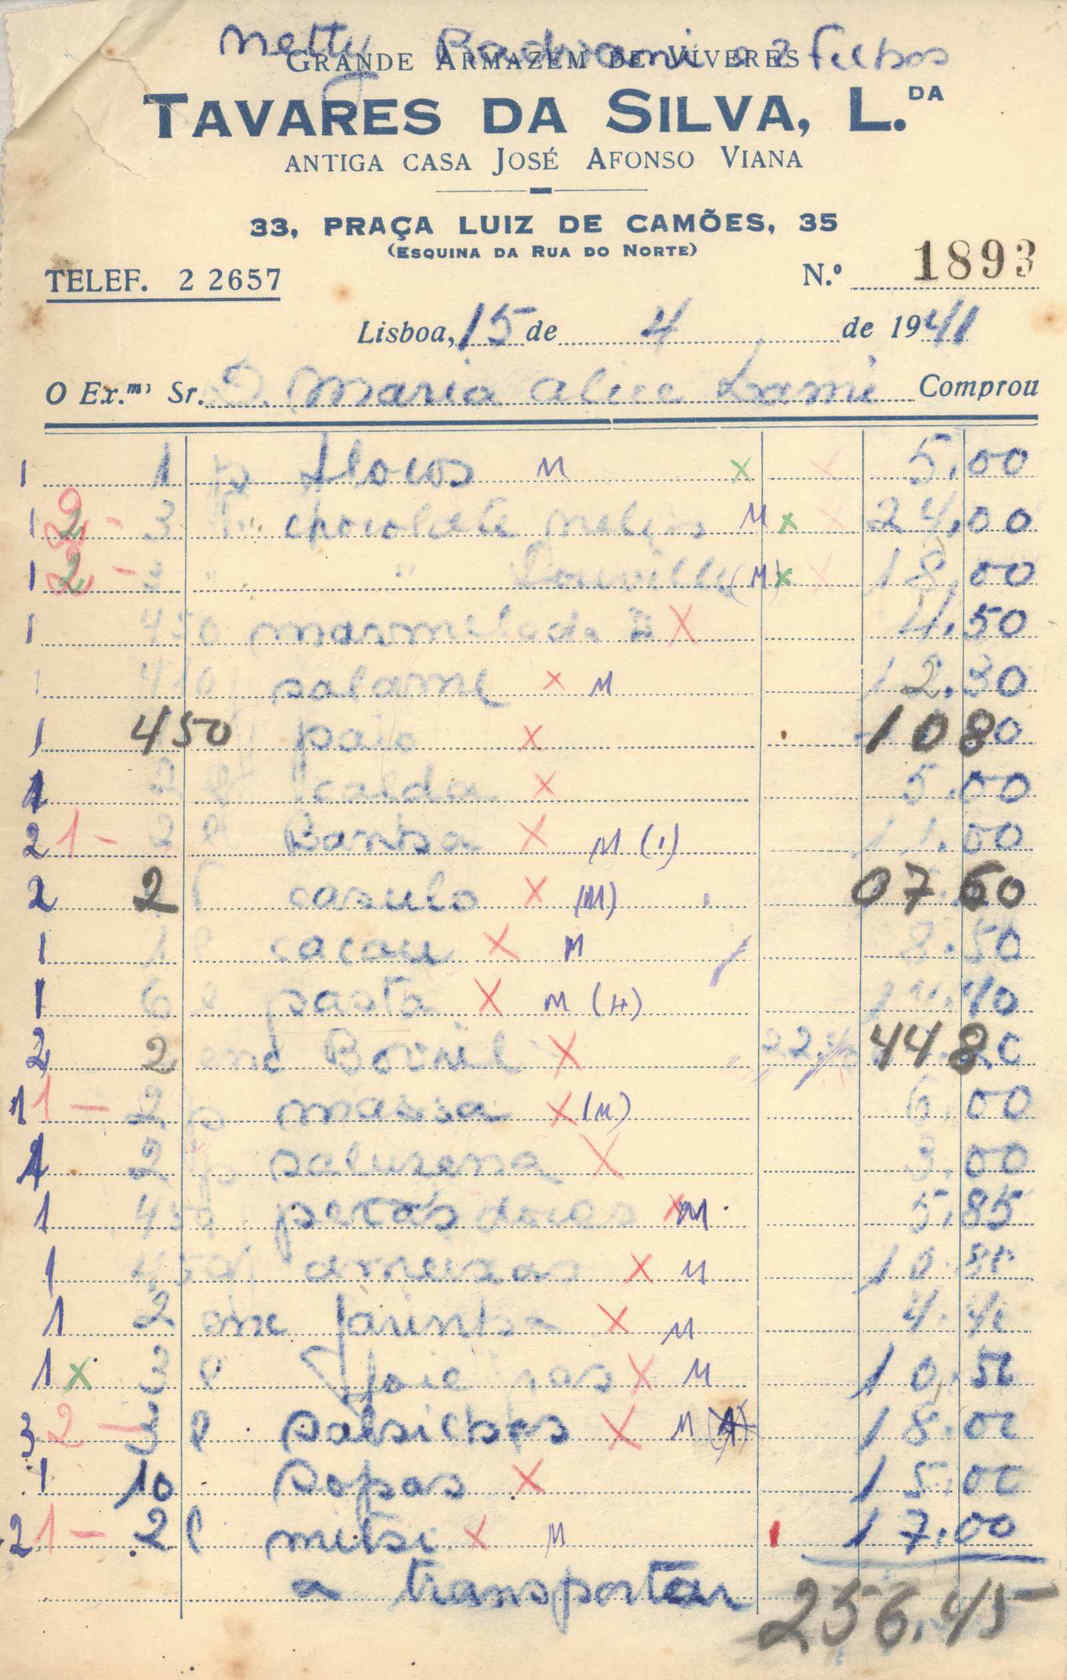 Netty e 2 filhos
GRANDE ARMAZEM DE VIVERES
TAVARES DA SILVA, L.DA
ANTIGA CASA JOSÉ AFONSO VIANA
33, PRAÇA LUIZ DE CAMÕES, 35
(ESQUINA DA RUA DO NORTE)
TELEF. 2 2657 N.º 1893
Lisboa, 15 de 4 de 1941
O Ex.mo Sr. D. Maria Alice Lami Comprou
1 1 flocos M x x 5.00
1 2 - 3 chocolate M x x 24.00
1 2 - " " (M) x x 18.00
1 450 marmelada X 4.50
salame x M 12.30
1 450 paio x 10 80
1 2 calda x 5.00
2 1 - 2 l Banha x M (1) 11.00
2 2 l casulo x (M) 07 60
1 1 l cacau X M 8.50
1 6 l pasta X M (4) 40
2 2 emb Bovril X 44 8
1 1 - 2 massa X (M) 6.00
1 2 X 3.00
1 450 peras doces X M 5.85
1 450 ameixas X M 10.80
1 2 farinha X M 4.40
1 x 3 l X M 10.50
3 2 - 3 l salsichas X M 18.00
1 10 sopas X 15.00
2 1 - 2 l X M 17.00
a transportar 256.45